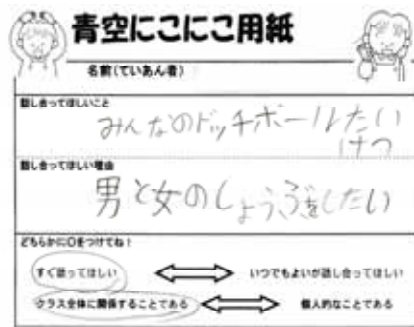 青空にこにこ用紙
名前(ていあん者)
話し合ってほしいこと
みんなのドッチボールたい
けつ
話し合ってほしい理由
男と女のしょうぶをしたい
どちらかに○をつけてね!
すぐ話ってほしい いつでもよいが話し合ってほしい
クラス全体に関することである 個人的なことである